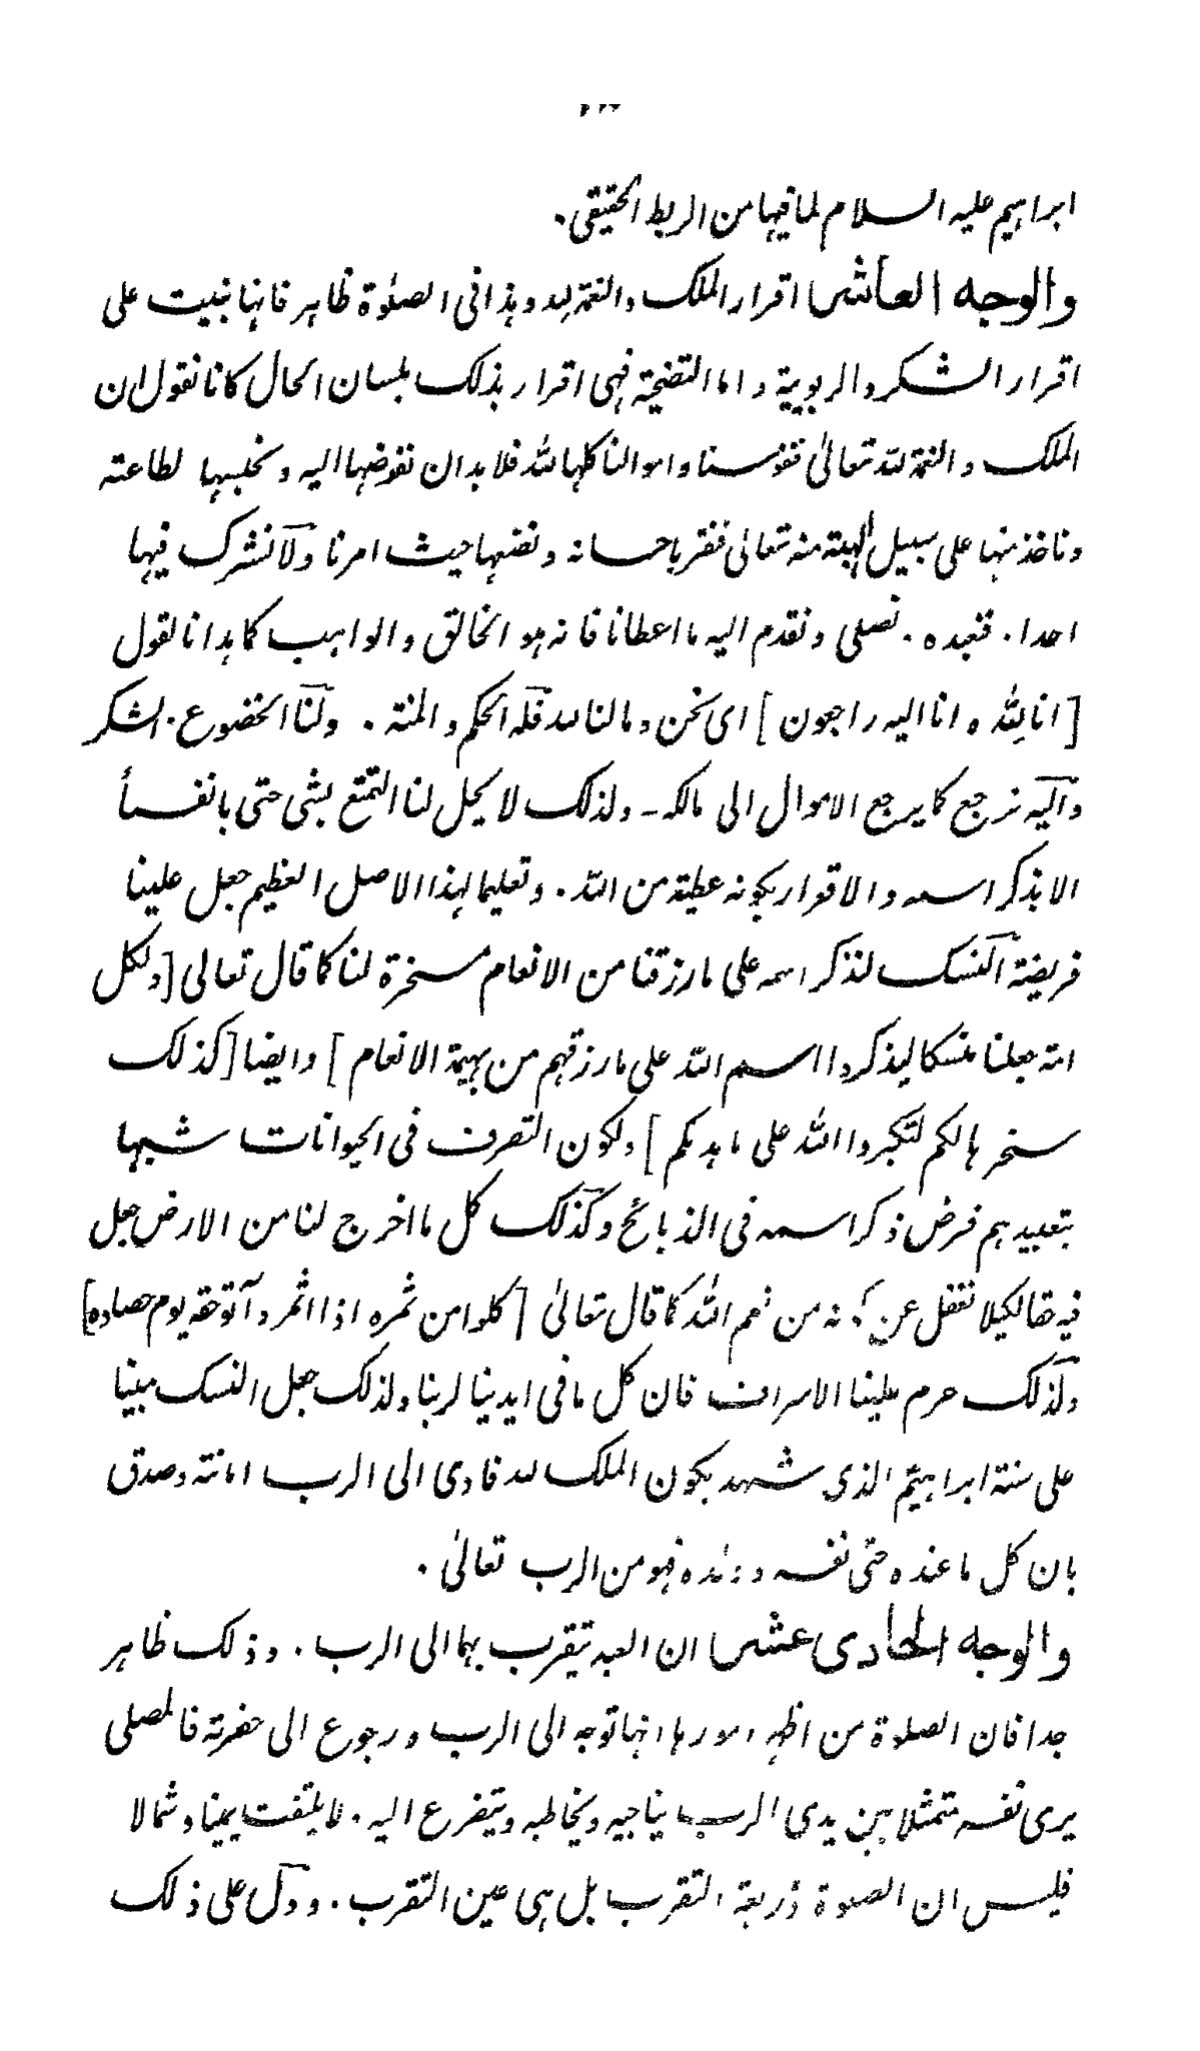 ابراہیم علیہ السلام لما فیہا من الربط الحقیقی .
والوجہ العاشر اقرار الملک والنعمۃ للہ وہذا فی الصلوٰۃ ظاہر فانہا بنیت علی
اقرار الشکر والربوبیۃ واما التضحیۃ فہی اقرار بذلک بلسان الحال کانا نقول ان
الملک والنعمۃ للہ تعالیٰ فنفوسنا واموالنا کلہا للہ فلا بد ان نفوضہا الیہ ونحبسہا لطاعتہ
وناخذ منہا علی سبیل الہبتہ منہ تعالی فنقر باحسانہ ونضہا حیث امرنا ولا نشرک فیہا
احدا . فنعبدہ . نصلی ونقدم الیہ ما اعطانا فانہ ہو الخالق والواہب کما ہدانا لقول
[انا للہ وانا الیہ راجعون] ای نحن ومالنا للہ فلہ الحکم والمنۃ . ولنا الخضوع . الشکر
والیہ نرجع کما یرجع الاموال الی مالکہ ـ ولذلک لا یحل لنا التمتع بشی حتی بانفسنا
الا بذکر اسمہ والاقرار بکونہ عطیۃ من اللہ . وتعلیما لہذا الاصل العظیم جعل علینا
فریضۃ النسک لنذکر اسمہ علی ما رزقنا من الانعام مسخرۃ لنا کما قال تعالی [ولکل
امۃ جعلنا منسکا لیذکروا اسم اللہ علی ما رزقہم من بہیمۃ الانعام] وایضا [کذلک
سخرہا لکم لتکبروا اللہ علی ما ہدٮکم] ولکون التصرف فی الحیوانات شبہا
بتعبیدہم فرض ذکر اسمہ فی الذبائح وکذلک کل ما اخرج لنا من الارض جعل
فیہ حقا لکیلا نغفل عن نہ من نعم اللہ کما قال تعالیٰ [کلوا من ثمرہ اذا اثمر وآتو حقہ یوم حصادہ]
وکذلک حرم علینا الاسراف فان کل ما فی ایدینا لربنا ولذلک جعل النسک مبنیا
علی سنۃ ابراہیم الذی شہد بکون الملک للہ فادی الی الرب امانتہ وصدق
بان کل ما عندہ حتی نفسہ و فہو من الرب تعالیٰ .
والوجہ الحادی عشر ان العبد یتقرب بہما الی الرب . وذلک ظاہر
جدا فان الصلوۃ من اظہر امورہا انہا توجہ الی الرب ورجوع الی حضرتہ فالمصلی
یری نفسہ متمثلا بین یدی الرب یناجیہ ویخاطبہ ویتضرع الیہ . لا یلتفت یمینا وشمالا
فلیس ان الصلوۃ ذریعۃ التقرب بل ہی عین التقرب . ودل علی ذلک